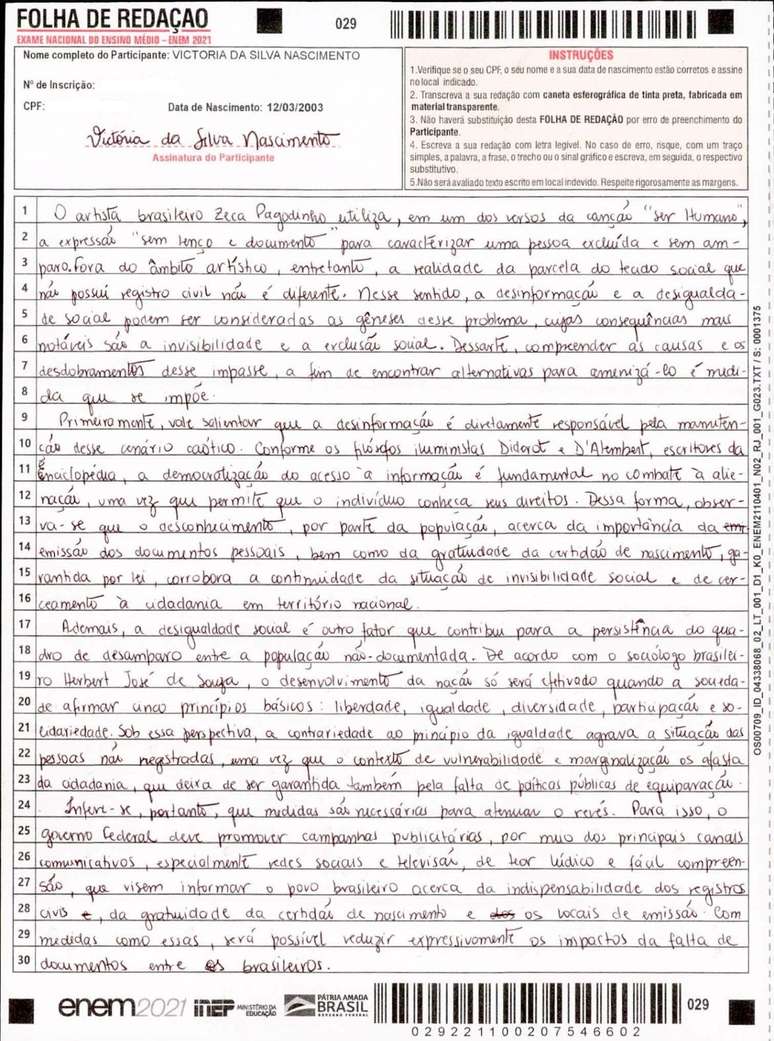 FOLHA DE REDAÇÃO
EXAME NACIONAL DO ENSINO MÉDIO - ENEM 2021
029
Nome completo do Participante: VICTORIA DA SILVA NASCIMENTO
Nº de Inscrição:
CPF:
Data de Nascimento: 12/03/2003
Victória da Silva Nascimento
Assinatura do Participante
INSTRUÇÕES
1.Verifique se o seu CPF, o seu nome e a sua data de nascimento estão corretos e assine
no local indicado.
2. Transcreva a sua redação com caneta esferográfica de tinta preta, fabricada em
material transparente.
3. Não haverá substituição desta FOLHA DE REDAÇÃO por erro de preenchimento do
Participante.
4. Escreva a sua redação com letra legível. No caso de erro, risque, com um traço
simples, a palavra, a frase, o trecho ou o sinal gráfico e escreva, em seguida, o respectivo
substitutivo.
5.Não será avaliado texto escrito em local indevido. Respeite rigorosamente as margens.
1 O artista brasileiro Zeca Pagodinho utiliza, em um dos versos da canção "Ser Humano",
2 a expressão "sem lenço e documento" para caracterizar uma pessoa excluída e sem am-
3 paro. Fora do âmbito artístico, entretanto, a realidade da parcela do tecido social que
4 não possui registro civil não é diferente. Nesse sentido, a desinformação e a desigualda-
5 de social podem ser consideradas as gêneses desse problema, cujas consequências mais
6 notáveis são a invisibilidade e a exclusão social. Dessarte, compreender as causas e os
7 desdobramentos desse impasse, a fim de encontrar alternativas para amenizá-lo é medi-
8 da que se impõe.
9 Primeiramente, vale salientar que a desinformação é diretamente responsável pela manuten-
10 ção desse cenário caótico. Conforme os filósofos iluministas Diderot e D'Alembert, escritores da
11 Enciclopédia, a democratização do acesso à informação é fundamental no combate à alie-
12 nação, uma vez que permite que o indivíduo conheça seus direitos. Dessa forma, obser-
13 va-se que o desconhecimento, por parte da população, acerca da importância da emi
14 emissão dos documentos pessoais, bem como da gratuidade da certidão de nascimento, ga-
15 rantida por lei, corrobora a continuidade da situação de invisibilidade social e de cer-
16 ceamento à cidadania em território nacional.
17 Ademais, a desigualdade social é outro fator que contribui para a persistência do qua-
18 dro de desamparo entre a população não-documentada. De acordo com o sociólogo brasilei-
19 ro Herbert José de Souza, o desenvolvimento da nação só será efetivado quando a socieda-
20 de afirmar cinco princípios básicos: liberdade, igualdade, diversidade, participação e so-
21 lidariedade. Sob essa perspectiva, a contrariedade ao princípio da igualdade agrava a situação das
22 pessoas não registradas, uma vez que o contexto de vulnerabilidade e marginalização os afasta
23 da cidadania, que deixa de ser garantida também pela falta de políticas públicas de equiparação.
24 Infere-se, portanto, que medidas são necessárias para atenuar o revés. Para isso, o
25 governo Federal deve promover campanhas publicitárias, por meio dos principais canais
26 comunicativos, especialmente redes sociais e televisão, de teor lúdico e fácil compreen-
27 são, que visem informar o povo brasileiro acerca da indispensabilidade dos registros
28 civis e, da gratuidade da certidão de nascimento e dos os locais de emissão. Com
29 medidas como essas, será possível reduzir expressivamente os impactos da falta de
30 documentos entre os brasileiros.
OS00709_ID_04338068_02_LT_001_D1_K0_ENEM2110401_N02_RJ_001_G023.TXT / S: 0001375
enem2021 INEP MINISTÉRIO DA EDUCAÇÃO PÁTRIA AMADA BRASIL GOVERNO FEDERAL
029
029221100207546602